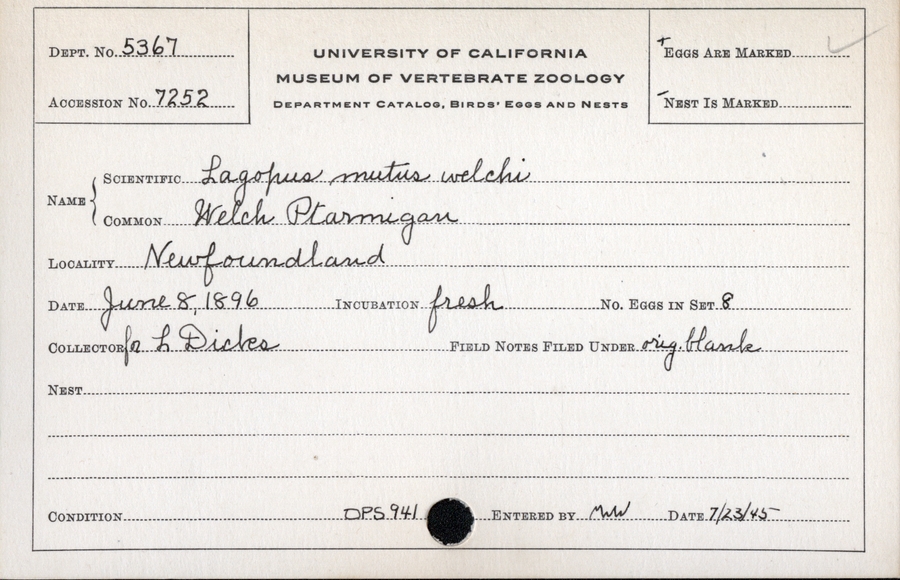 DEPT. No. 5367
ACCESSION No. 7252
UNIVERSITY OF CALIFORNIA
MUSEUM OF VERTEBRATE ZOOLOGY
DEPARTMENT CATALOG, BIRDS' EGGS AND NESTS
+ EGGS ARE MARKED ✓
- NEST IS MARKED
NAME { SCIENTIFIC Lagopus mutus welchi
COMMON Welch Ptarmigan
LOCALITY Newfoundland
DATE June 8, 1896 INCUBATION fresh No. EGGS IN SET 8
COLLECTOR for L Dicks FIELD NOTES FILED UNDER orig. blank
NEST
CONDITION OPS 941 ENTERED BY MWW DATE 7/23/45